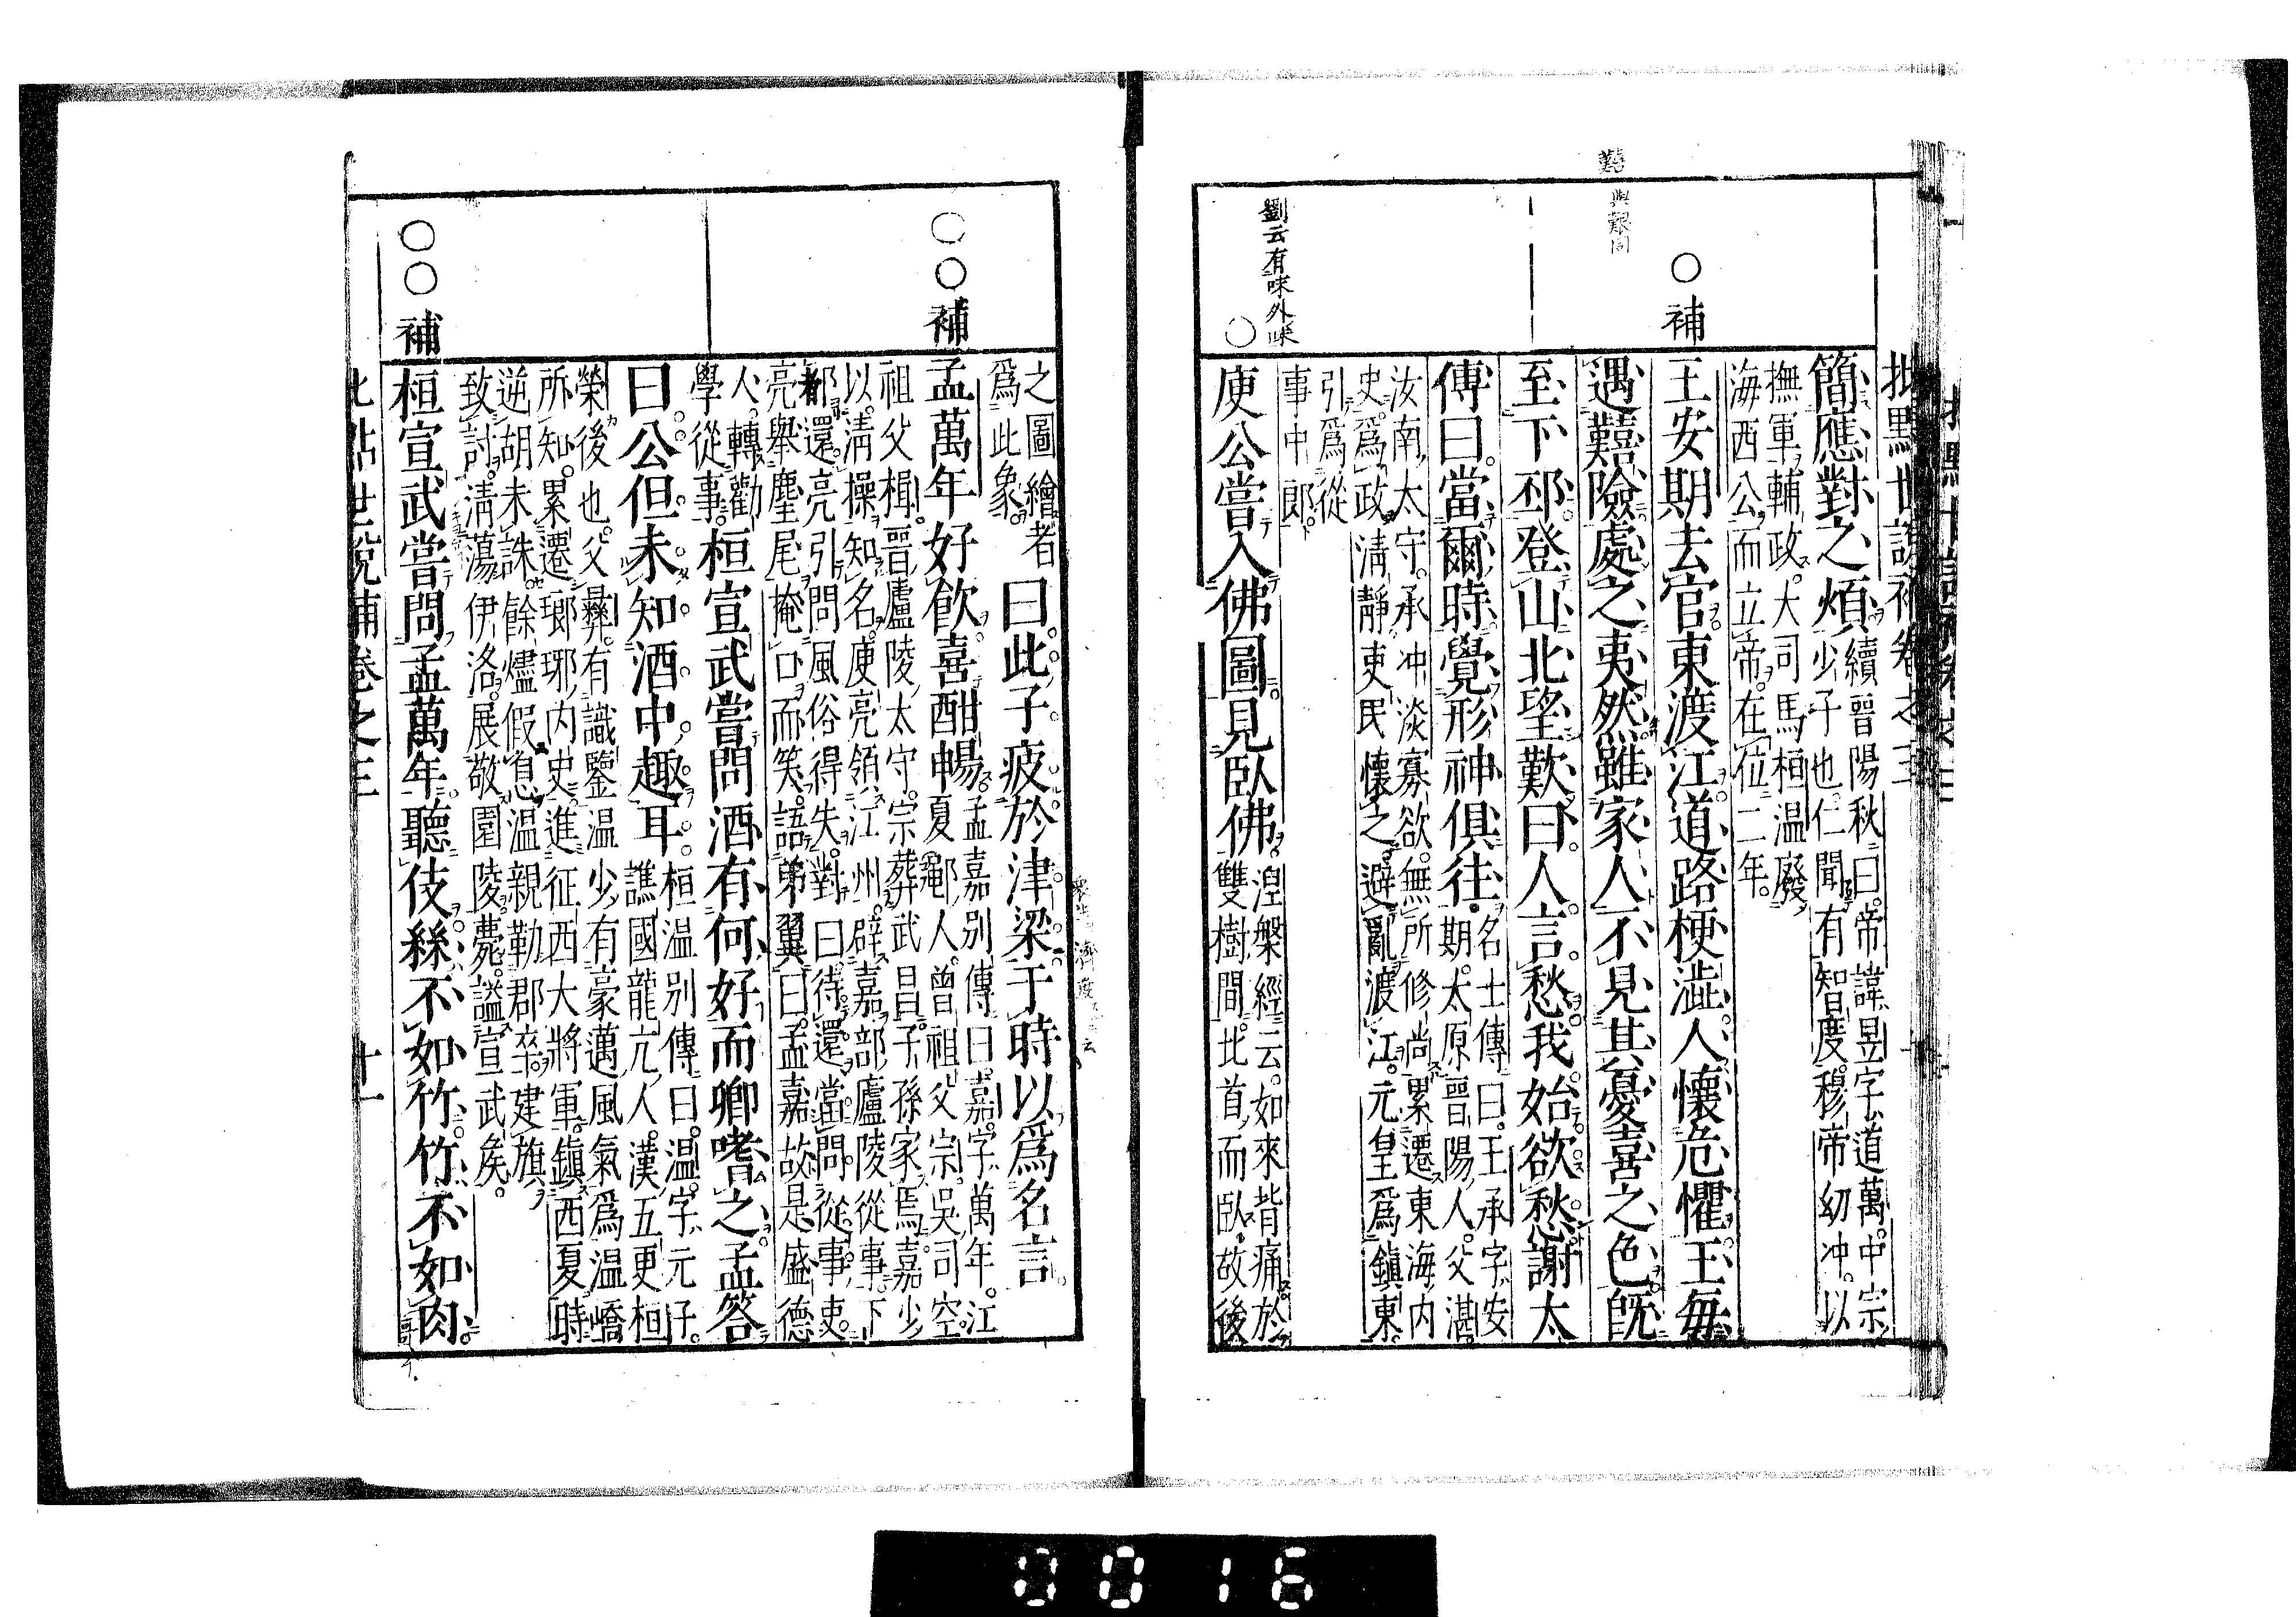 批點世說補卷之三
簡應對之煩
續晉陽秋曰帝諱昱字道萬中宗
少子也仁聞有智度穆帝幼冲以
撫軍輔政大司馬桓温廢
海西公而立帝在位二年
補
王安期去官東渡江道路梗澁人懷危懼王毎
遇囏險處之夷然雖家人不見其憂喜之色旣
至下邳登山北望歎曰人言愁我始欲愁謝太
傅曰當爾時覺形神俱往
名士傳曰王承字安
期太原晉陽人父湛
汝南太守承冲淡寡欲無所修尚累遷東海内
史爲政淸靜吏民懷之避亂渡江元皇爲鎭東
引爲從
事中郎
劉云有味外味
庾公嘗入佛圖見臥佛
涅槃經云如來背痛於
雙樹間北首而臥故後
之圖繪者
爲此象
曰此子疲於津梁于時以爲名言
補
孟萬年好飮喜酣暢
孟嘉別傳曰嘉字萬年江
夏鄳人曾祖父宗吳司空
祖父楫晉廬陵太守宗葬武昌子孫家焉嘉少
以淸操知名庾亮領江州辟嘉部廬陵從事下
都還亮引問風俗得失對曰待還當問從事吏
亮舉麈尾掩口而笑語弟翼曰孟嘉故是盛德
人轉勸
學從事
桓宣武嘗問酒有何好而卿嗜之孟答
曰公但未知酒中趣耳
桓温別傳曰温字元子
譙國龍亢人漢五更桓
榮後也父彝有識鑒温少有豪邁風氣爲温嶠
所知累遷瑯琊内史進征西大將軍鎭西夏時
逆胡未誅餘燼假息温親勒郡卒建旗
致討淸蕩伊洛展敬園陵薨謚宣武矦
補
桓宣武嘗問孟萬年聽伎絲不如竹竹不如肉
批點世說補卷之三
廿一
0016